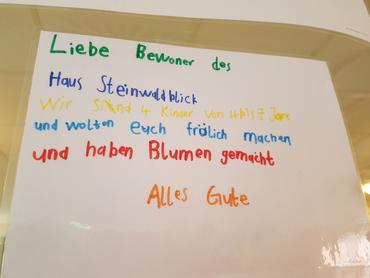 Liebe Bewoner des
Haus Steinwaldblick
Wir sind 4 Kinder von 4 bis 7 Jare
und wolten euch frölich machen
und haben Blumen gemacht
Alles Gute